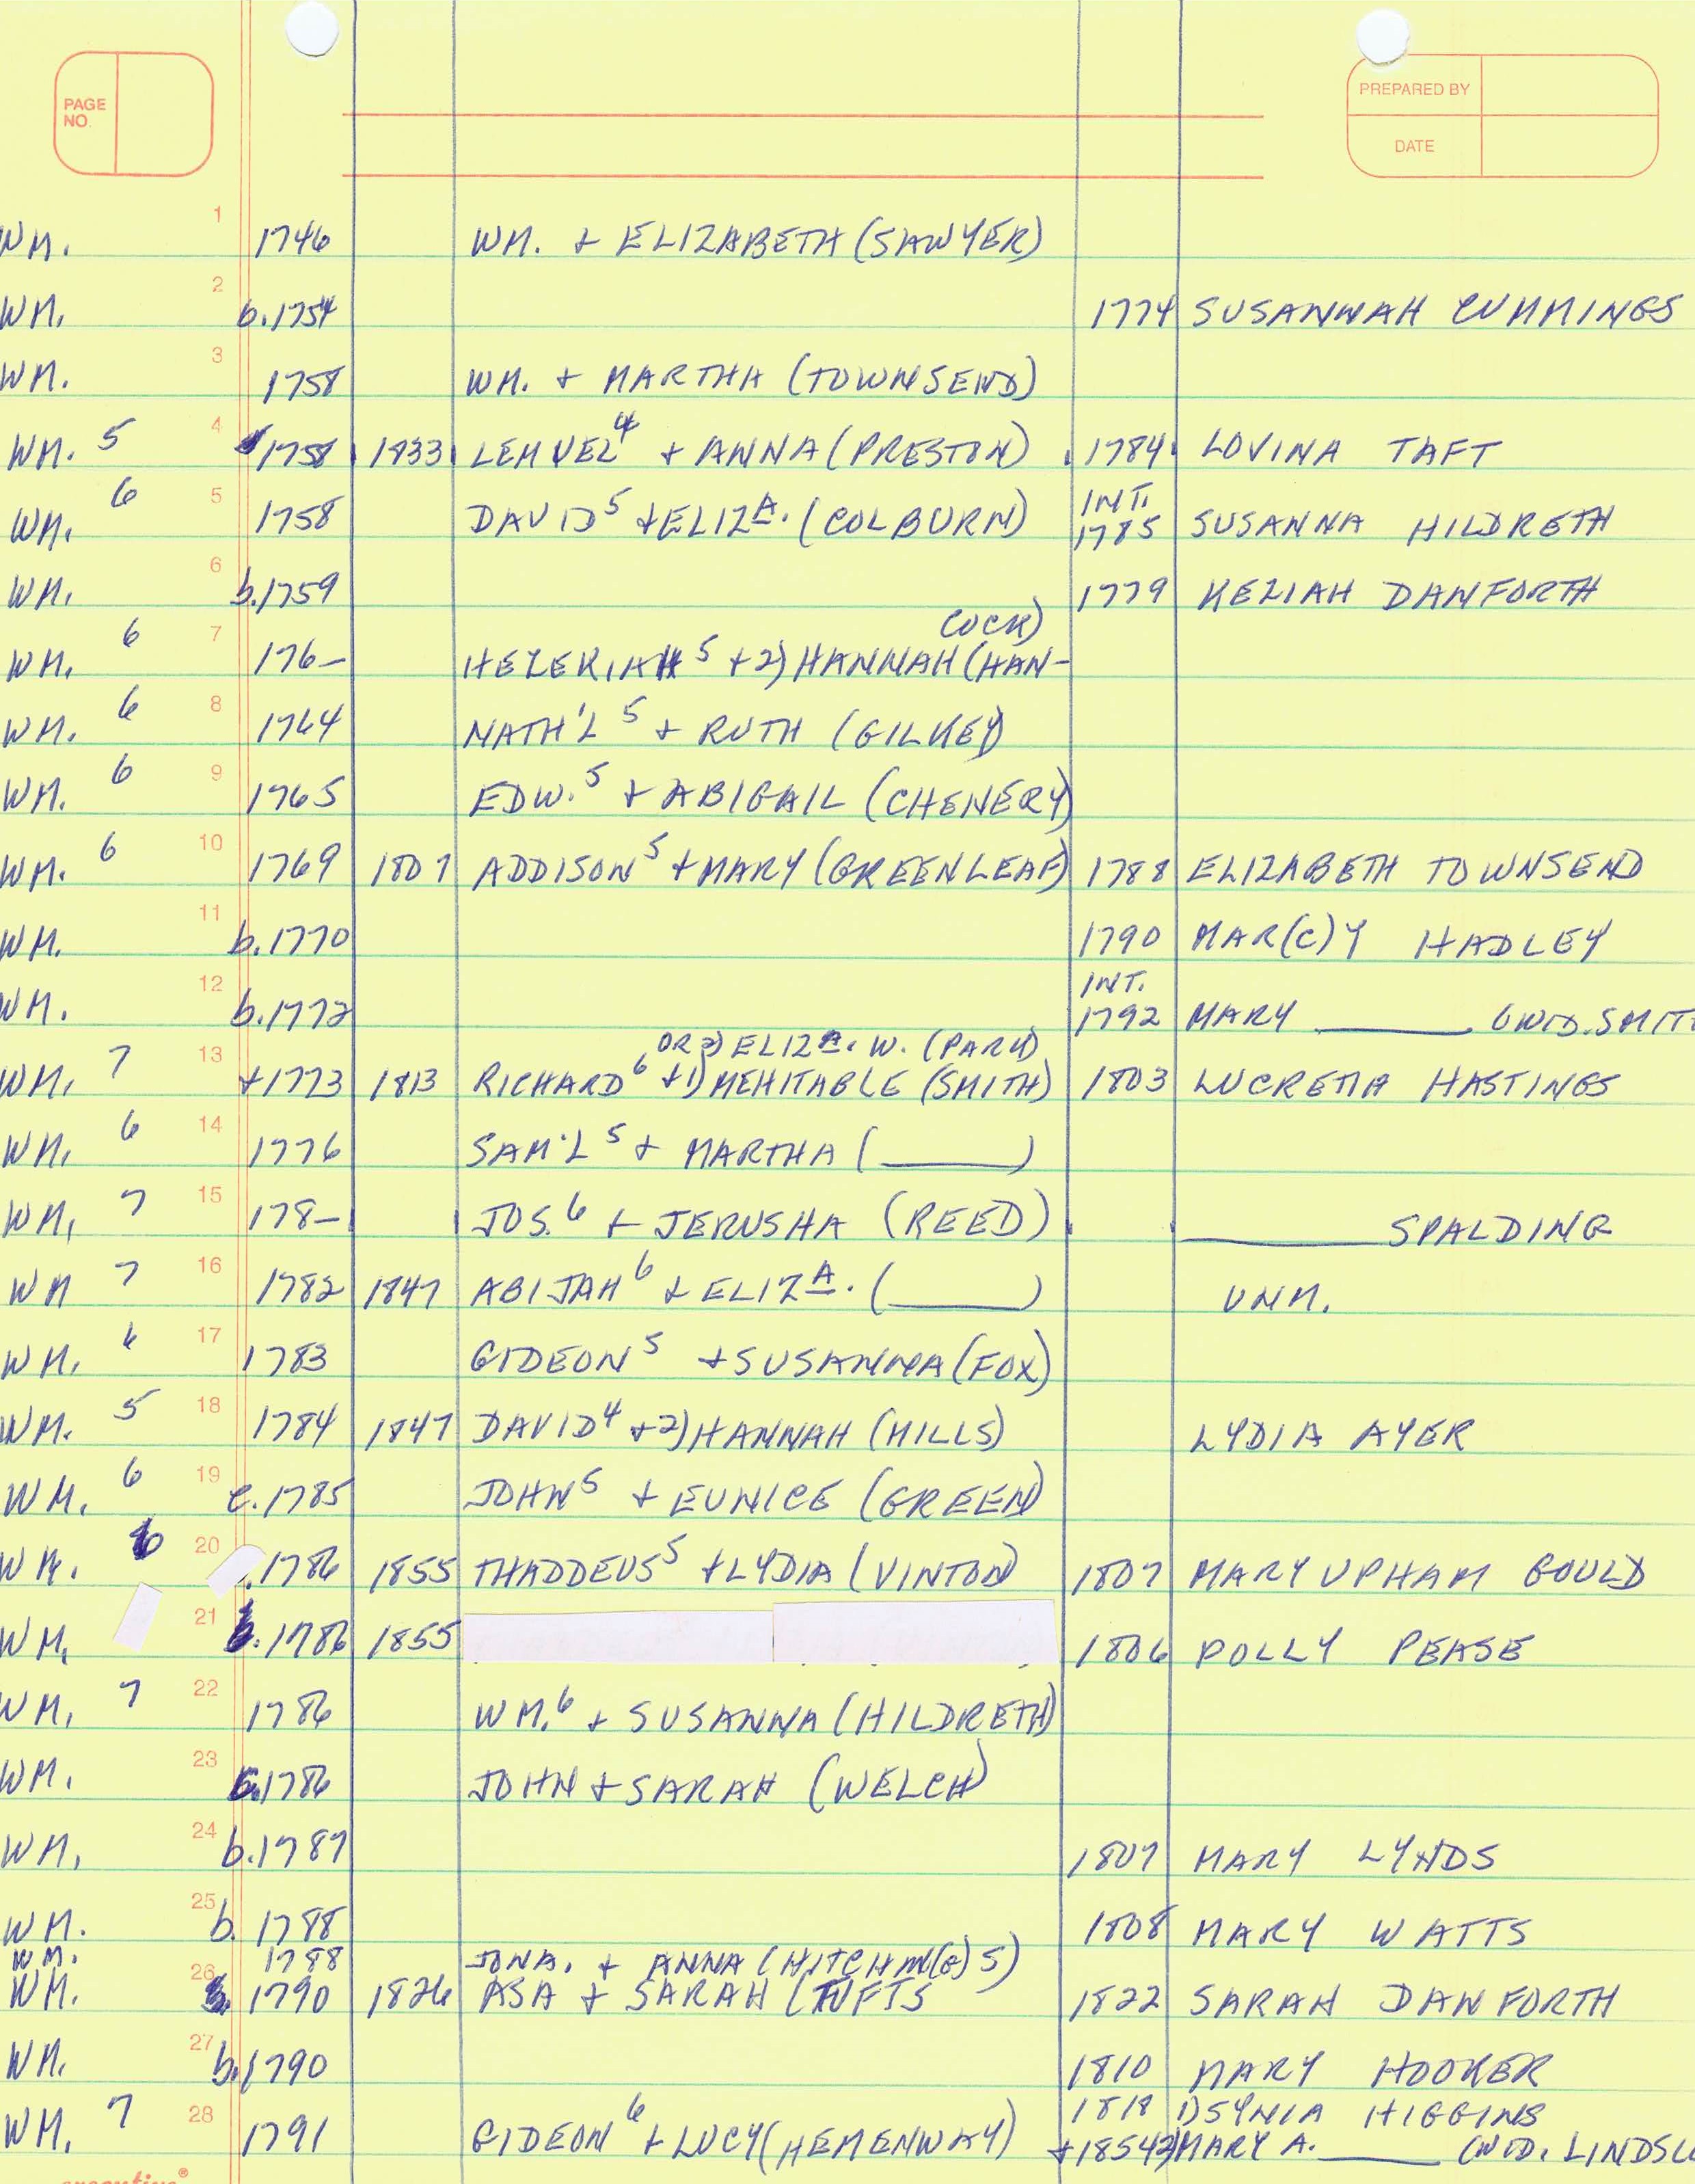 PAGE NO.
PREPARED BY
DATE
1 WM. 1746 WM. + ELIZABETH (SAWYER)
2 WM. b.1754 1774 SUSANNAH CUMMINGS
3 WM. 1758 WM. + MARTHA (TOWNSEND)
4 WM. 5 1758 1833 LEMUEL 4 + ANNA (PRESTON) 1784 LOVINA TAFT
INT.
5 WM. 6 1758 DAVID 5 + ELIZA. (COLBURN) 1785 SUSANNA HILDRETH
6 WM. b.1759 1779 KEZIAH DANFORTH
COCK)
7 WM. 6 176- HEZEKIAH 5 + 2) HANNAH (HAN-
8 WM. 6 1764 NATH'L 5 + RUTH (GILKEY)
9 WM. 6 1765 EDW. 5 + ABIGAIL (CHENERY)
10 WM. 6 1769 1807 ADDISON 5 + MARY (GREENLEAF) 1788 ELIZABETH TOWNSEND
11 WM. b.1770 1790 MAR(C)Y HADLEY
INT.
12 WM. b.1772 1792 MARY ____ (WID. SMIT
OR 2) ELIZA. W. (PARK)
13 WM. 7 +1773 1813 RICHARD 6 + 1) MEHITABLE (SMITH) 1803 LUCRETIA HASTINGS
14 WM. 6 1776 SAM'L 5 + MARTHA (____)
15 WM. 7 178- JOS. 6 + JERUSHA (REED) ____ SPALDING
16 WM 7 1782 1847 ABIJAH 6 + ELIZA. (____) UNM.
17 WM. 6 1783 GIDEON 5 + SUSANNA (FOX)
18 WM. 5 1784 1847 DAVID 4 + 2) HANNAH (HILLS) LYDIA AYER
19 WM. 6 c.1785 JOHN 5 + EUNICE (GREEN)
20 WM. 6 .1786 1855 THADDEUS 5 + LYDIA (VINTON) 1807 MARY UPHAM GOULD
21 WM. b.1786 1855 1806 POLLY PEASE
22 WM. 7 1786 WM. 6 + SUSANNA (HILDRETH)
23 WM. 1786 JOHN + SARAH (WELCH)
24 WM. b.1787 1807 MARY LYNDS
25 WM. b. 1788 1808 MARY WATTS
WM. 1788 JONA. + ANNA
26 WM. 1790 1826 ASA + SARAH (TUFTS 1822 SARAH DANFORTH
27 WM. b.1790 1810 MARY HOOKER
1818 1) HIGGINS
28 WM. 7 1791 GIDEON 6 + LUCY (HEMENWAY) +1854 2) MARY A. ____ (WID. LINDSL